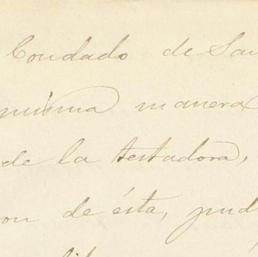 Condado de San
misma manera
de la testadora,
de ésta, pud